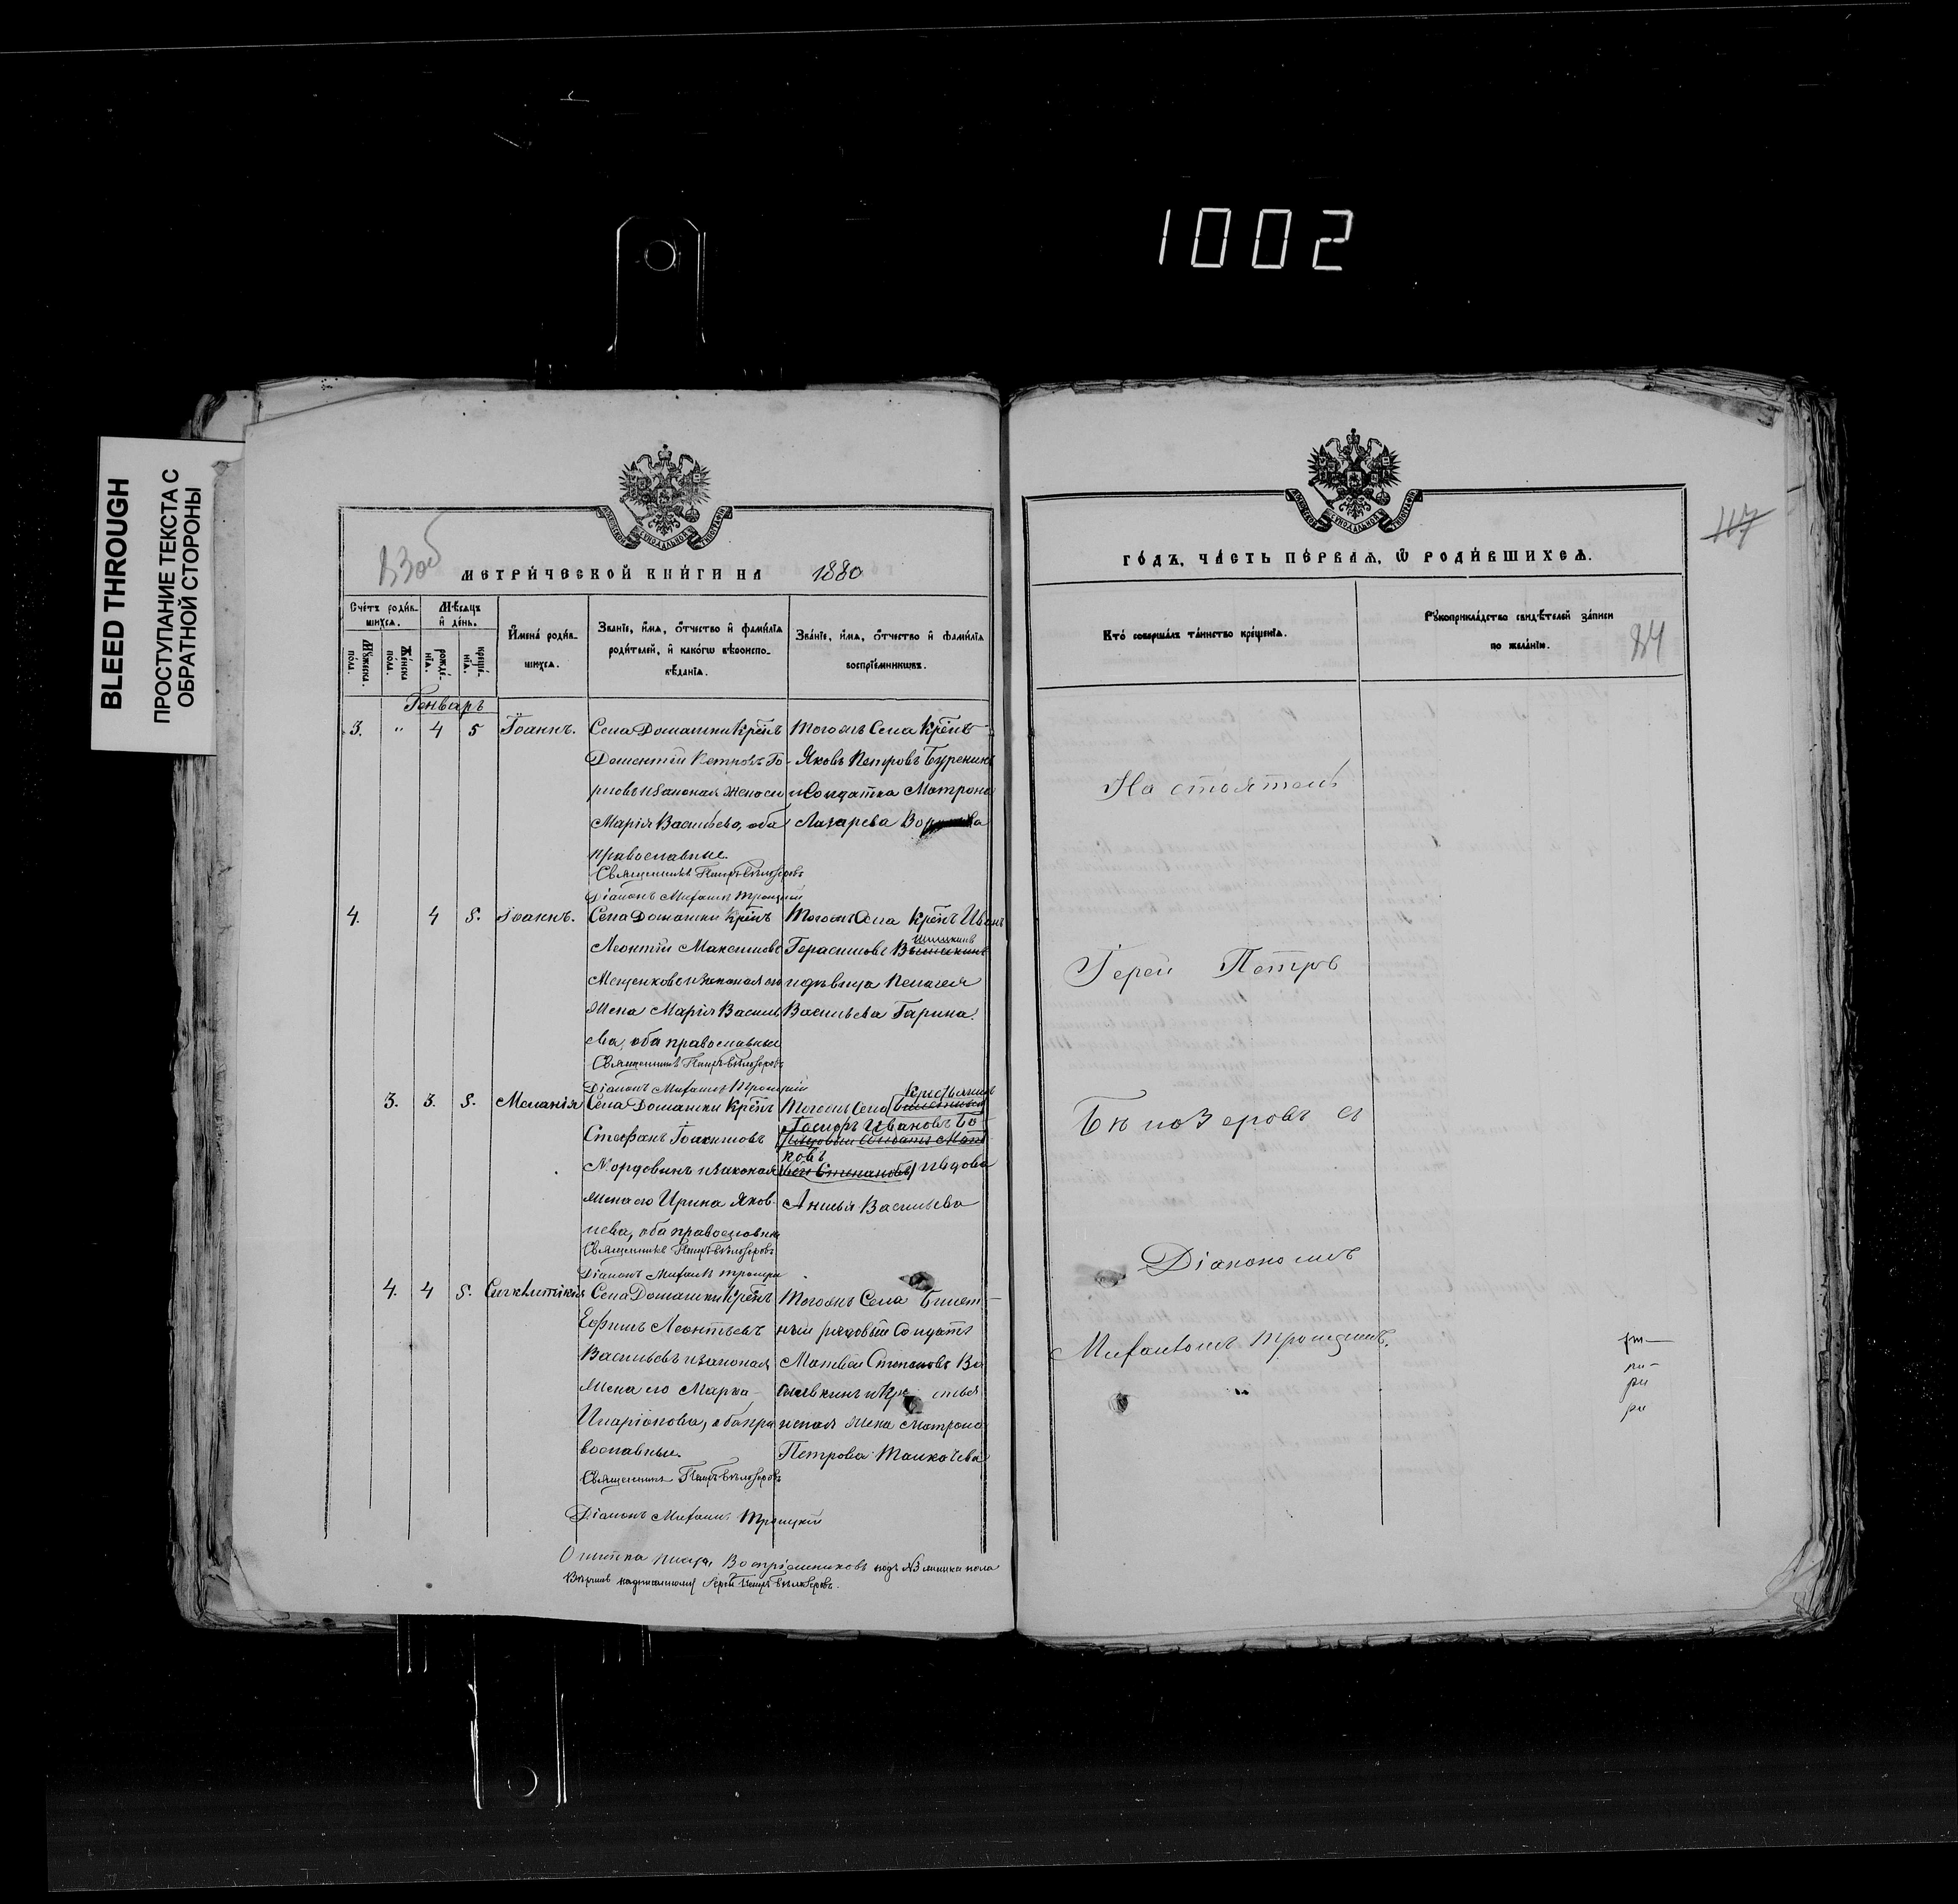 1002
BLEED THROUGH
ПРОСТУПАНИЕ ТЕКСТА С
ОБРАТНОЙ СТОРОНЫ
МЕТРИ́ЧЕСКОЙ КНИ́ГИ НА 1880
Сче́тъ роди́в-
шихсѧ.
Мѣ́сѧцъ
и҆ де́нь.
Мꙋ́жеска
по́ла.
Же́нска
по́ла.
рожде́-
нїѧ.
креще́-
нїѧ.
И҆мена̀ роди́в-
шихсѧ.
Зва́нїе, и҆́мѧ, ѻ҆́тчество и҆ фами́лїѧ
роди́телей, и҆ како́гѡ вѣроиспо-
вѣ́данїѧ.
Зва́нїе, и҆́мѧ, ѻ҆́тчество и҆ фами́лїѧ
воспрїе́мникѡвъ.
Генварь
3. " 4 5 Іоаннъ.
Села Домашки Крест̃нъ
Дометій Петровъ Го-
риовъ и законая жена ей
Марія Васильева, оба
православные.
Священникъ Петръ Бѣлозеровъ
Діаконъ Михаилъ Троицкій
Того жъ Села Крест̃нъ
Яковъ Петровъ Буренинъ
и Солдатка Матрона
Лазарева
4. 4 5. Іоаннъ.
Села Домашки Крест̃нъ
Леонтій Максимовъ
Мещенковъ и законая его
Жена Марія Василь
ева, оба православные
Священникъ Петръ Бѣлозеровъ
Діаконъ Михаилъ Троицкій
Того жъ Села Крест̃нъ Иванъ
Герасимовъ Шишкинъ
и дѣвица Пелагея
Васильева Гарина.
3. 3. 5. Меланія
Села Домашки Крест̃нъ
Стефанъ Іоакимовъ
Мордовинъ и законая
Жена его Ирина Яков-
лева, оба православные
Священникъ Петръ Бѣлозеровъ
Діаконъ Михаилъ Троицкій
Крестьянинъ
Того жъ Села
Іосифъ Ивановъ Бо-
ковъ
и вдова
Анисья Васильева
4. 4 5. Синклитикія
Села Домашки Крест̃нъ
Ефимъ Леонтьевъ
Васильевъ и законая
Жена его Марѳа
Иларіонова, оба пра
вославные.
Священникъ Петръ Бѣлозеровъ
Діаконъ Михаилъ Троицкій
Того жъ Села Билет-
ный рядовой Солдатъ
Матвей Степановъ
нская Жена Матрона
Петрова Толкочева
Ошибка писца, Воспріемниковъ подъ №3 женска пола
Вѣрить надписанному Іерей Петръ Бѣлозеровъ.
ГО́ДЪ, ЧА́СТЬ ПЕ́РВАѦ, Ѡ҆ РОДИ́ВШИХСѦ.
117
84
Кто̀ соверша́лъ та́инство креще́нїѧ.
Рꙋкоприкла́дство свидѣ́телей за́писи
по жела́нїю.
Настоятель
Іерей Петръ
Бѣлозеровъ съ
Діакономъ
Михаиломъ Троицкимъ.